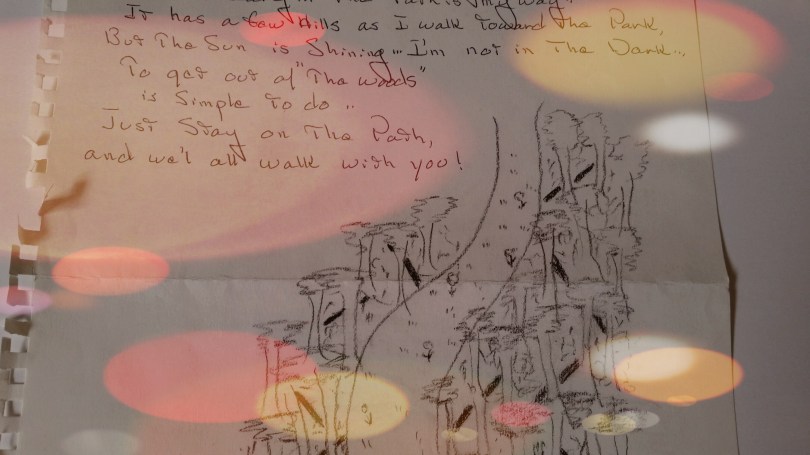 in The Path is my way!
It has a few Hills as I walk toward The Park,
But The Sun is Shining... I'm not in The Dark...
To get out of "The woods"
is Simple to do..
Just Stay on The Path,
and we'l all walk with you!